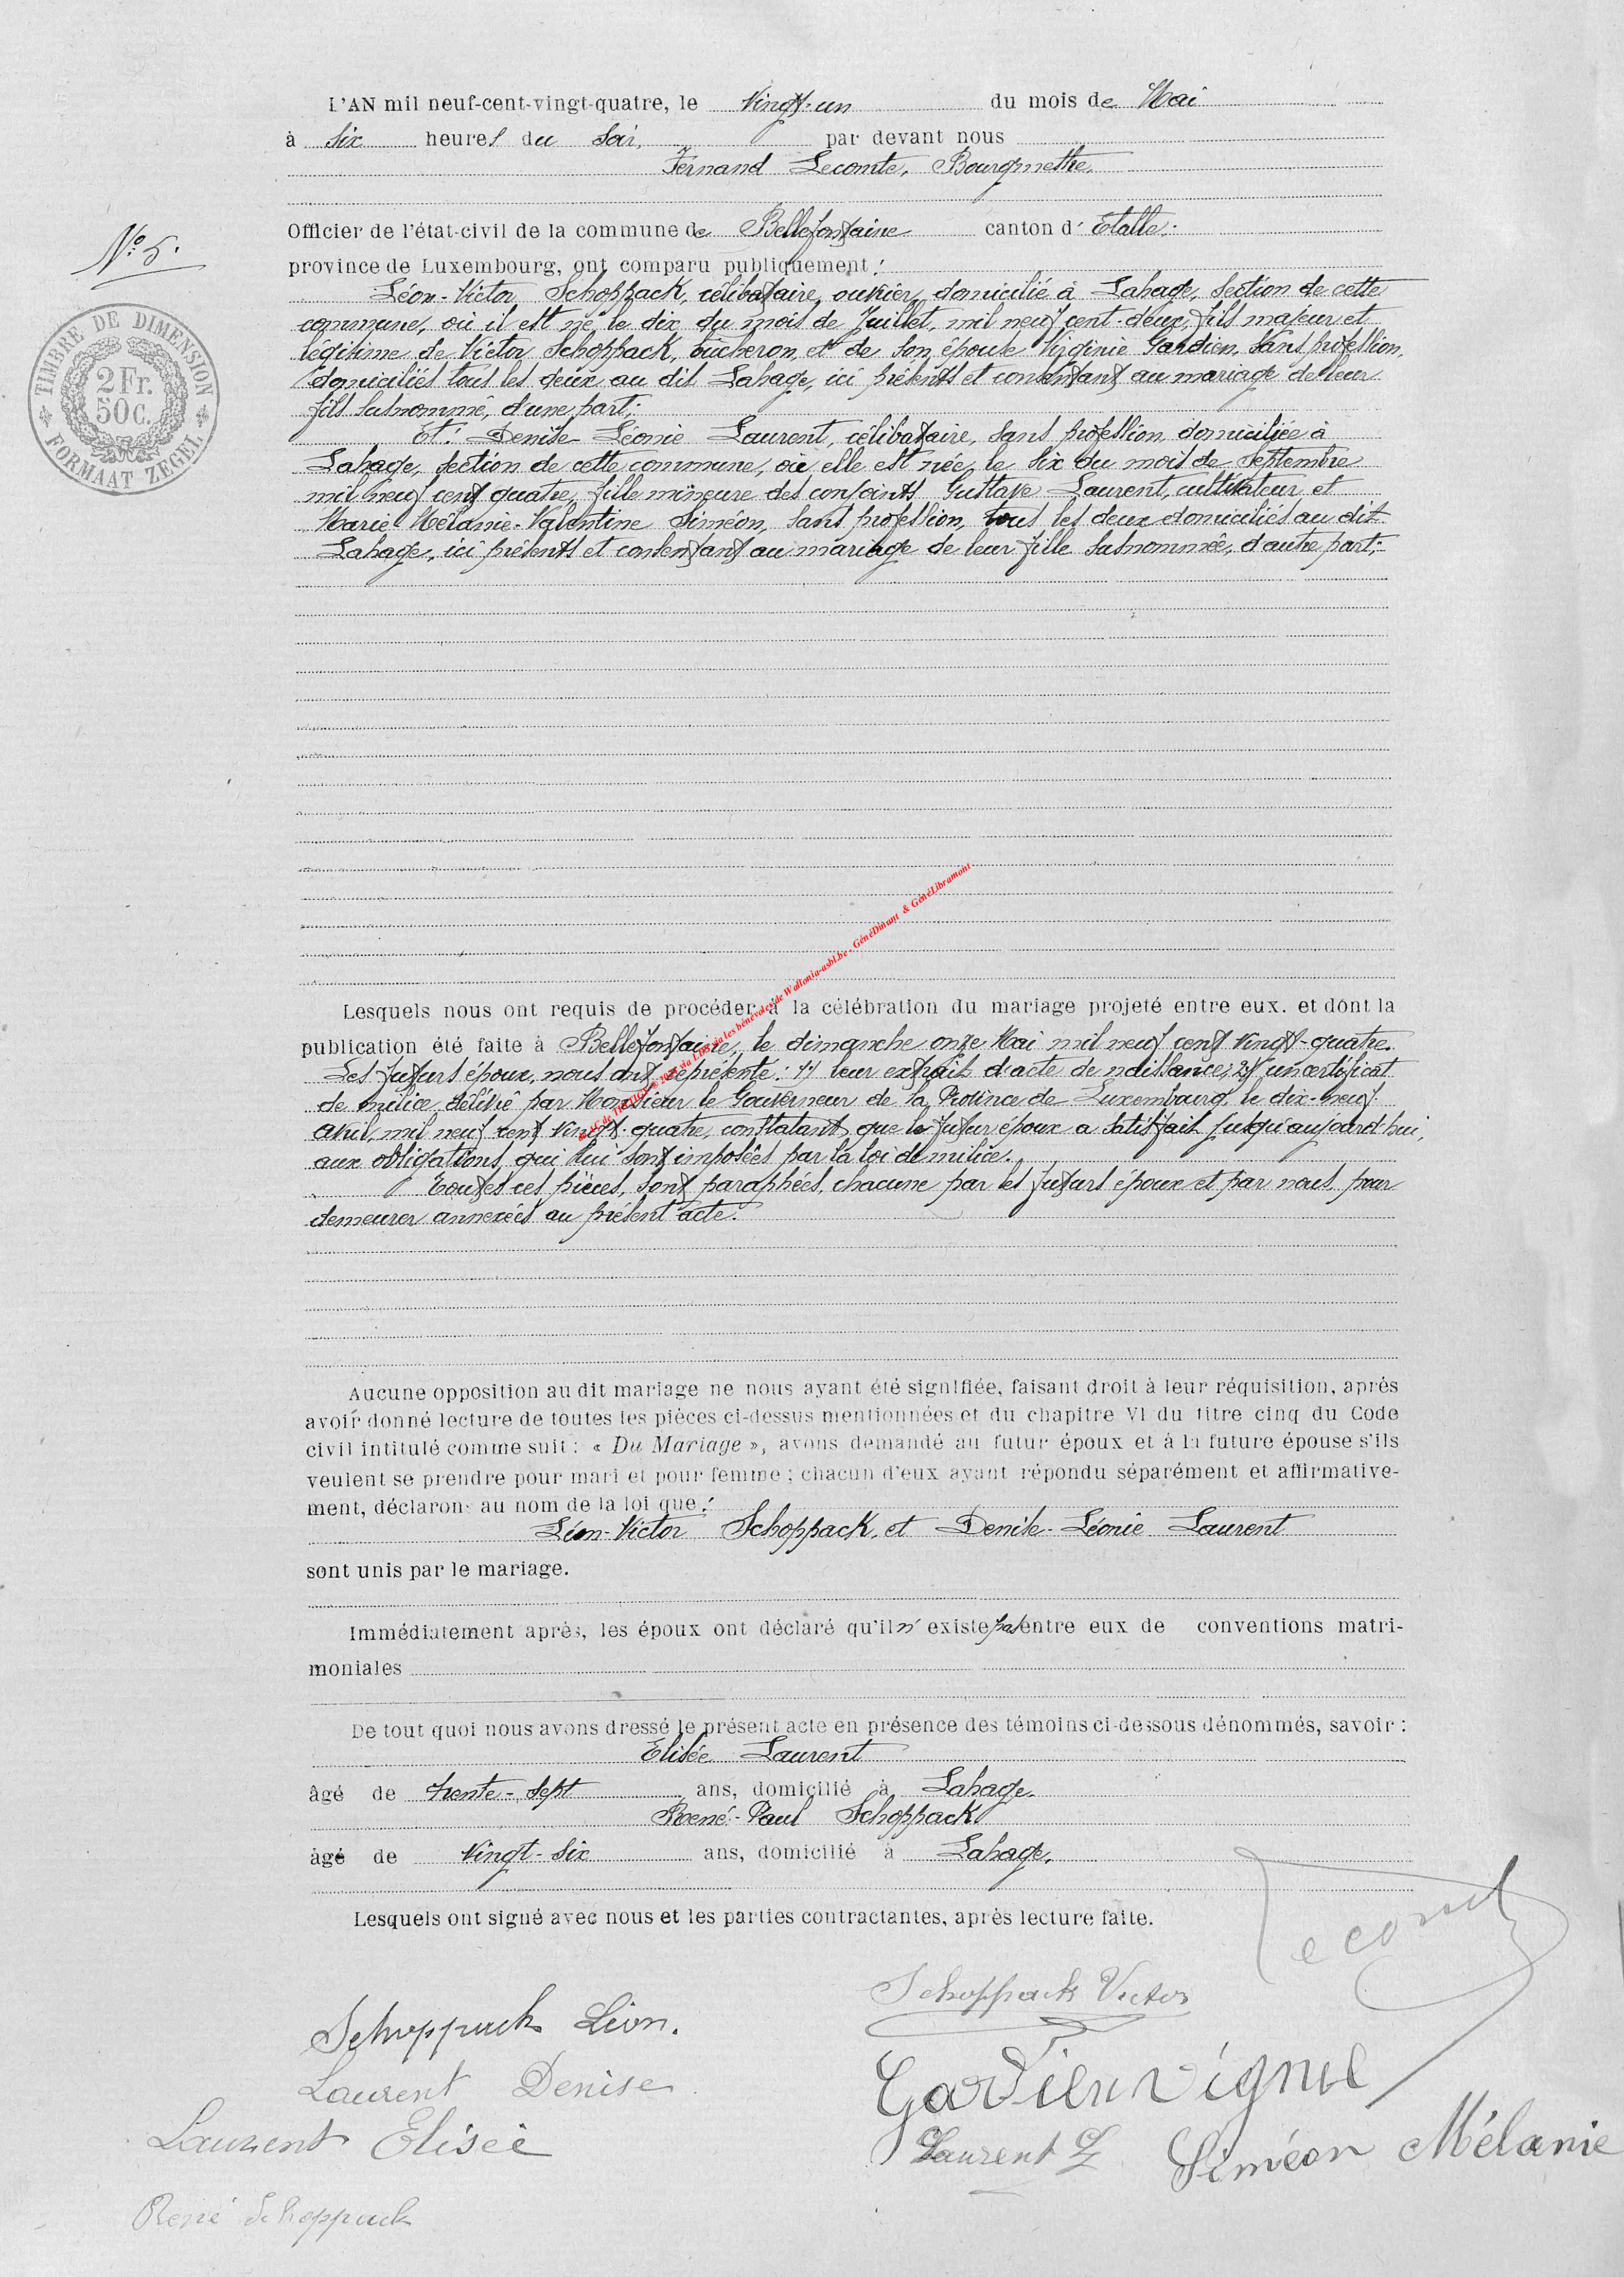 L'AN mil neuf-cent-vingt-quatre, le Vingt-un du mois de Mai
à six heures du soir, par devant nous
Fernand Lecomte, Bourgmestre,
N° 5.
Officier de l'état-civil de la commune de Bellefontaine canton d'Etalle,
province de Luxembourg, ont comparu publiquement :
Léon-Victor Schoppack, célibataire, ouvrier, domicilié à Lahage, section de cette
commune, où il est né, le dix du mois de Juillet, mil neuf cent-deux, fils majeur et
légitime de Victor Schoppack, bûcheron, et de son épouse Virginie Gardien, sans profession,
domiciliés tous les deux au dit Lahage, ici présents et consentant au mariage de leur
fils susnommé, d'une part;
Et : Denise-Léonie Laurent, célibataire, sans profession, domiciliée à
Lahage, section de cette commune, où elle est née, le six du mois de Septembre
mil neuf cent quatre, fille mineure des conjoints Gustave Laurent, cultivateur, et
Marie-Mélanie-Valentine Siméon, sans profession, tous les deux domiciliés au dit
Lahage, ici présents et consentant au mariage de leur fille susnommée, d'autre part;
TIMBRE DE DIMENSION
2 Fr.
50 C.
FORMAAT ZEGEL
Lesquels nous ont requis de procéder à la célébration du mariage projeté entre eux. et dont la
publication été faite à Bellefontaine, le dimanche onze Mai mil neuf cent vingt-quatre.
Les futurs époux, nous ont représenté : 1°) leur extrait d'acte de naissance; 2°) un certificat
de milice délivré par Monsieur le Gouverneur de la Province de Luxembourg, le dix-neuf
avril, mil neuf cent vingt-quatre, constatant que le futur époux a satisfait jusqu'aujourd'hui,
aux obligations, qui lui sont imposées par la loi de milice.
Toutes ces pièces, sont paraphées, chacune par les futurs époux et par nous pour
demeurer annexées au présent acte.
Aucune opposition au dit mariage ne nous ayant été signifiée, faisant droit à leur réquisition, après
avoir donné lecture de toutes les pièces ci-dessus mentionnées et du chapitre VI du titre cinq du Code
civil intitulé comme suit : « Du Mariage », avons demandé au futur époux et à la future épouse s'ils
veulent se prendre pour mari et pour femme ; chacun d'eux ayant répondu séparément et affirmative-
ment, déclarons au nom de la loi que :
Léon-Victor Schoppack, et Denise-Léonie Laurent
sont unis par le mariage.
Immédiatement après, les époux ont déclaré qu'il n'existe pas entre eux de conventions matri-
moniales
De tout quoi nous avons dressé le présent acte en présence des témoins ci-dessous dénommés, savoir :
Elisée Laurent
âgé de trente-sept ans, domicilié à Lahage,
René-Paul Schoppack
âgé de Vingt-six ans, domicilié à Lahage,
Lesquels ont signé avec nous et les parties contractantes, après lecture faite.
Lecomte
Schoppack Victor
Schoppack Léon.
Laurent Denise
Laurent Elisée
Laurent G
Siméon Mélanie
René Schoppack